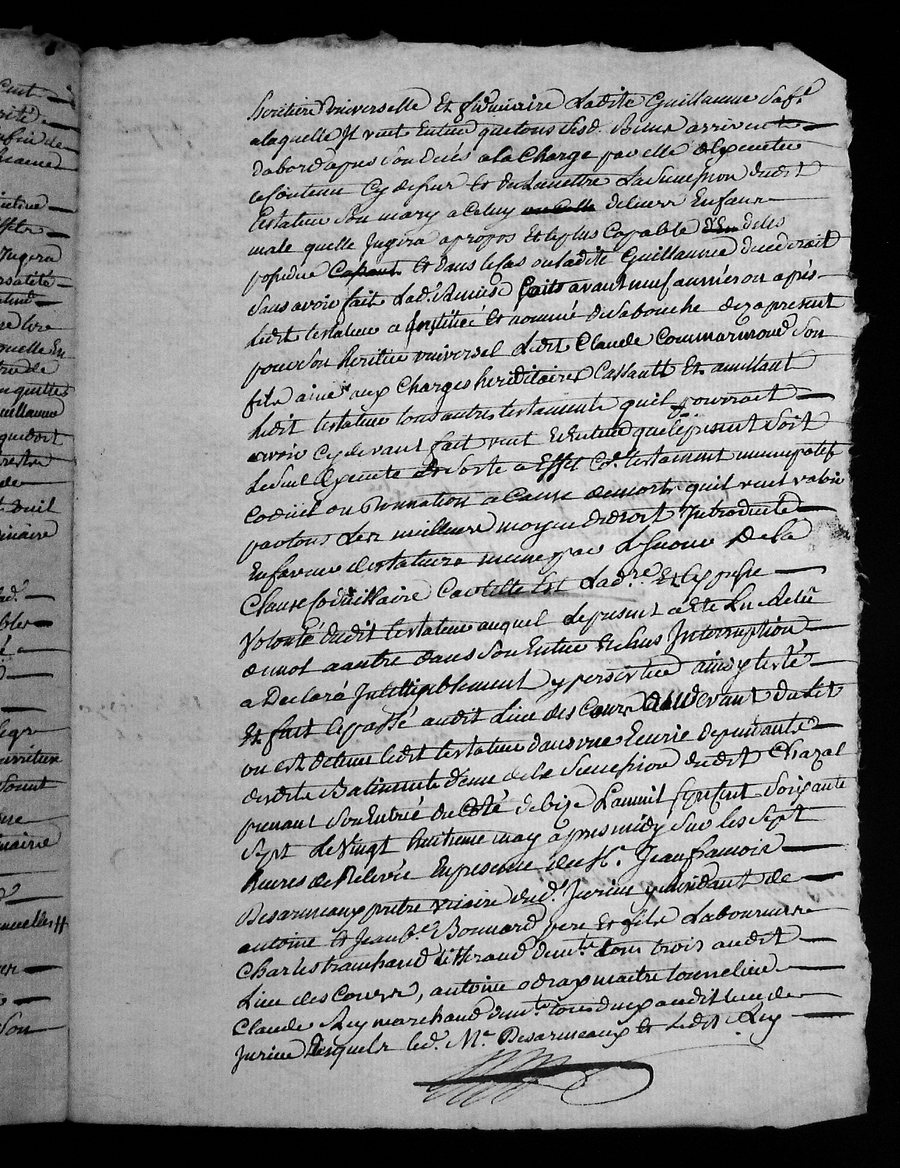 heritiere universelle Et fiduciaire Ladite Guillaume Saf.e
a laquelle Il veut Entend que tous Sesd. Biens arrivent
d'abord apres Son deces a la Charge par elle d'Executer
le Contenu Cy dessus Et de Remettre La Succession dudit
testateur Son mary a Celuy de leurs Enfans
male quelle Jugera a propos Et le plus Capable
Et dans le Cas ou ladite Guillaume decederoit
Sans avoir fait Lad. Remise avant neuf années ou apres
Ledit testateur a Institué Et nommé de Sa bouche dez a present
pour Son heritier universel Ledit Claude Commarmond Son
fils ainé aux Charges hereditaires Cassant Et annullant
ledit testateur tous autres testaments qu'il pourroit
avoir Cy devant fait veut Et Entend que le present Soit
Le Seul Execute Et Sorte a Effet Par testament nuncupatif
Codicil ou Donnation a Cause de mort qu'il veut valoir
par tous Les meilleurs moyens de droit Introduits
En faveur des testateurs meme par Le Secours De la
Clause Codicillaire Car telle Est La dre. Et Expresse
Volonté dudit testateur auquel le present a Eté Lu Relu
de mot a autre dans Son Entier Et Sans Interruption
a Declaré Intelligiblement y persister ainsy testé
Et fait Et passé audit Lieu des Cours au devant du Lit
ou est detenu ledit testateur dans une Ecurie dependante
desdits Batiments d'eue de la Succession dudit Chazal
prenant Son Entrée du Coté de bize L'an mil Sept Cent Soixante
Sept Le Vingt huitieme may apres midy Sur les Sept
heures de Relevée En presence de Mr. Jean francois
Desarmeaux pretre vicaire dud. Jurieu y residant de
antoine Et Jean B.te Bonnard pere Et fils Laboureurs
Charles tranchand dit Giraud dem.ts tous trois audit
Lieu des Cours, antoine odras maitre tonnelier
Claude Rey marchand dem.ts tous deux audit lieu de
Jurieu desquels led. Mr. Desarmeaux Et Ledit Rey